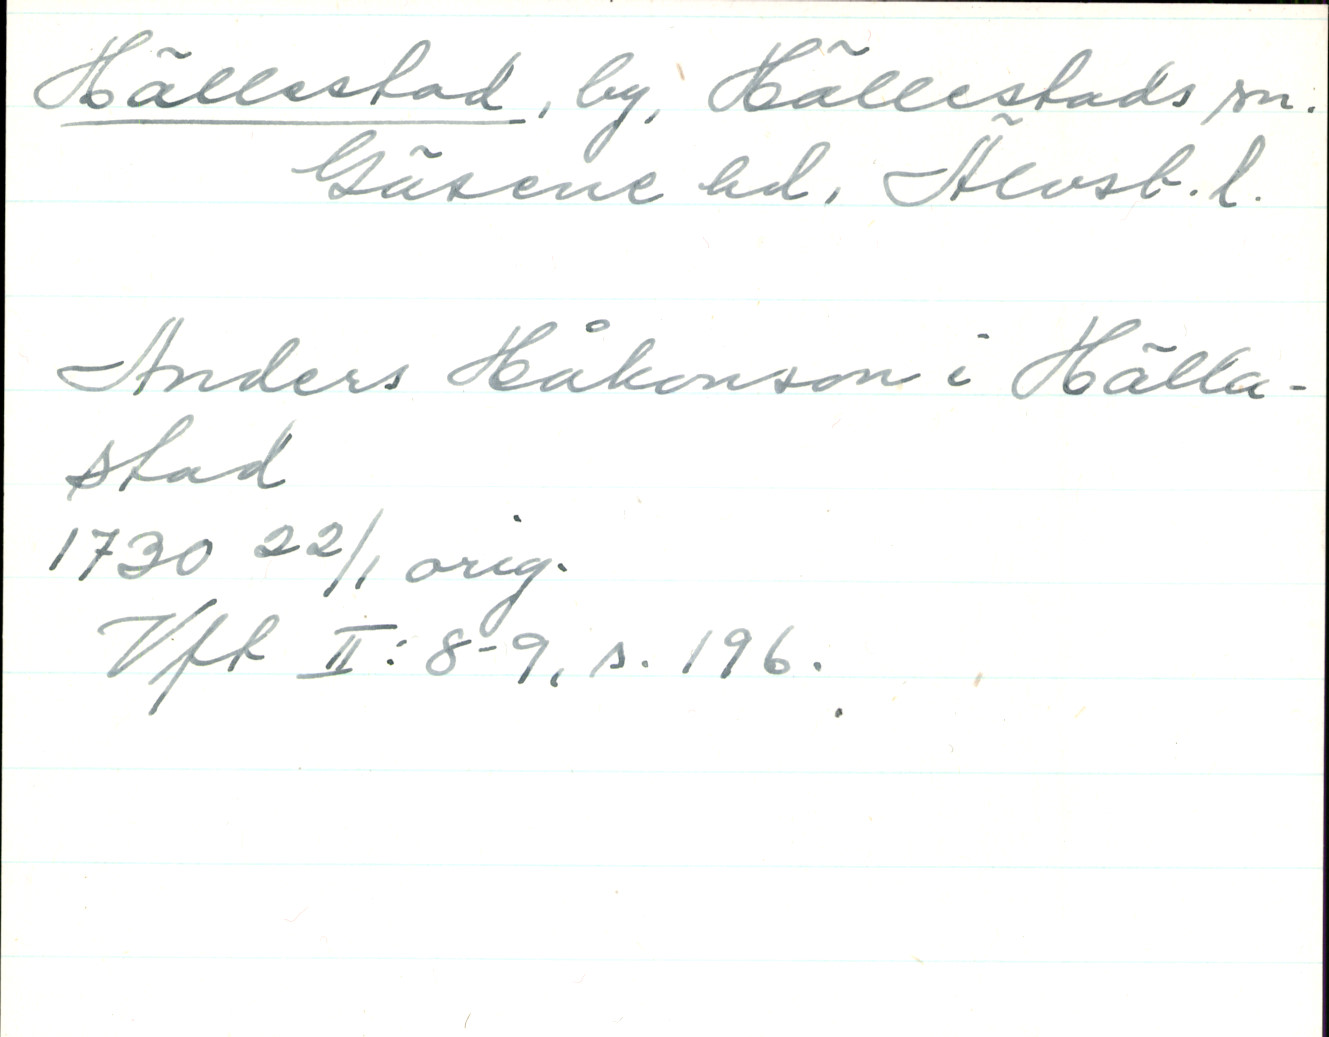 Hällestad, by, Hällestads sn.
Gäsene hd, Älvsb. l.
Anders Håkonson i Hälla-
stad
1730 22/1 orig.
Vfk II: 8-9, s. 196.